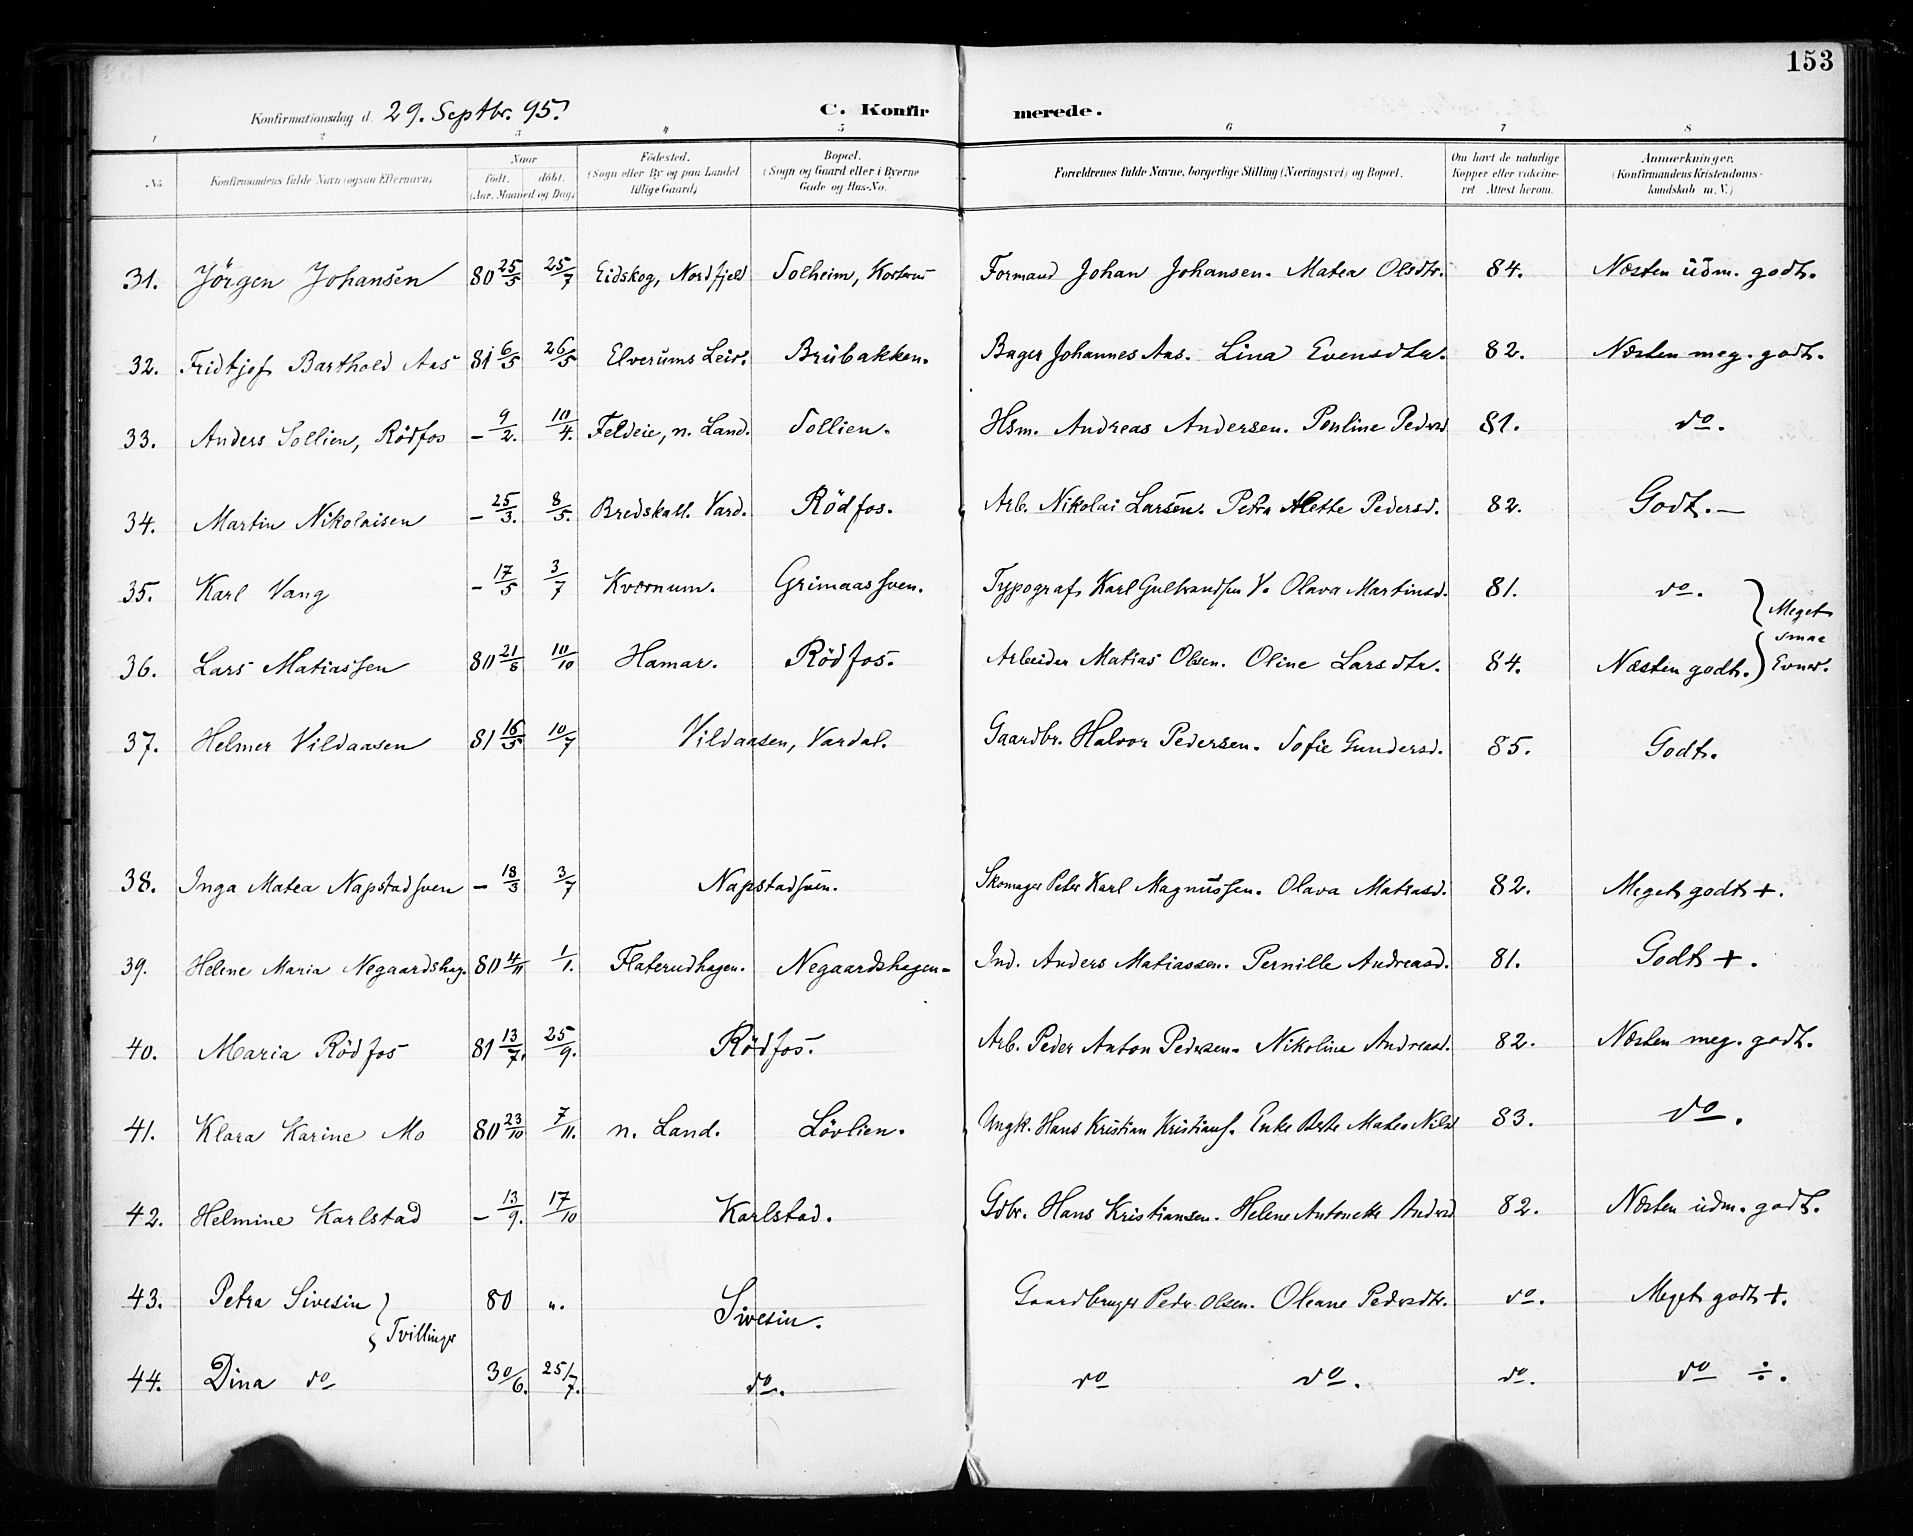 153
Konfirmationsdag d. 29. Septbr. 95. C. Konfirmerede.
1 2 3 4 5 6 7 8
No. Konfirmandens fulde Navn (ogsaa Efternavn) Naar født. døbt. (Aar, Maaned og Dag) Fødested. (Sogn eller By og paa Landet tillige Gaard) Bopæl. (Sogn og Gaard eller i Byerne Gade og Hus-No. Forældrenes fulde Navne, borgerlige Stilling (Næringsvei) og Bopæl. Om havt de naturlige Kopper eller vaccineret. Attest herom. Anmærkninger. (Konfirmandens Kristendomskundskab m. V.)
31. Jörgen Johansen 80 25/5 25/7 Eidskog, Nordfjeld Solheim, Formand Johan Johansen. Matea Olsdtr. 84. Næsten udm. godt.
32. Fridtjof Barthold Aas 81 6/5 26/5 Elverums Leir. Brubakken. Bager Johannes Aas. Lina Evensdtr. 82. Næsten meg. godt.
33. Anders Sollien, Rödfos - 9/2. 10/4. Feldeie, n. Land. Sollien. Hsm. Andreas Andersen. Pouline Pedersd 81. do.
34. Martin Nikolaisen - 25/3. 8/5. Bredskall. Vard. Rödfos. Arb. Nikolai Larsen. Petra Alette Pedersd. 82. Godt. —
35. Karl Vang - 17/5 3/7 Kvernum. Grimaassven. Typograf Karl Gulbrandsen V. Olava Martinsd. 81. do. } Meget smaa Evner.
36. Lars Matiassen 80 21/8 10/10 Hamar. Rödfos. Arbeider Matias Olsen. Oline Larsdtr. 84. Næsten godt.
37. Helmer Vildaasen 81 16/5 10/7 Vildaasen, Vardal. Gaardbr. Halvor Pedersen. Sofie Gundersd. 85. Godt.
38. Inga Matea Napstadsven - 18/3 3/7 Napstadsven. Skomager Peter Karl Magnussen. Olava Matiasd. 82. Meget godt +.
39. Helene Maria Negaardshag. 80 4/11 1/1. Flaterudhagen. Negaardshagen - Ind. Anders Matiassen. Pernille Andreasd. 81. Godt +.
40. Maria Rödfos 81 13/7. 25/9. Rödfos. Arb. Peder Anton Pedersen. Nikolina Andreasd. 82. Næsten meg. godt.
41. Klara Karine Mo 80 23/10 7/11. n. Land. Lövlien. Ungk. Hans Kristian Kristians. Enke Berte Matea Nilsd 83. do.
42. Helmine Karlstad - 13/9. 17/10 Karlstad. Gdbr. Hans Kristiansen. Helene Antonette Andersd 82. Næsten udm. godt.
43. Petra Sivesin } Tvillinger 80 ". Sivesin. Gaardbruger Peder Olsen. Oleane Pedersdtr. do. Meget godt +.
44. Dina do 30/6. 25/7. do. do do. do. do ÷.